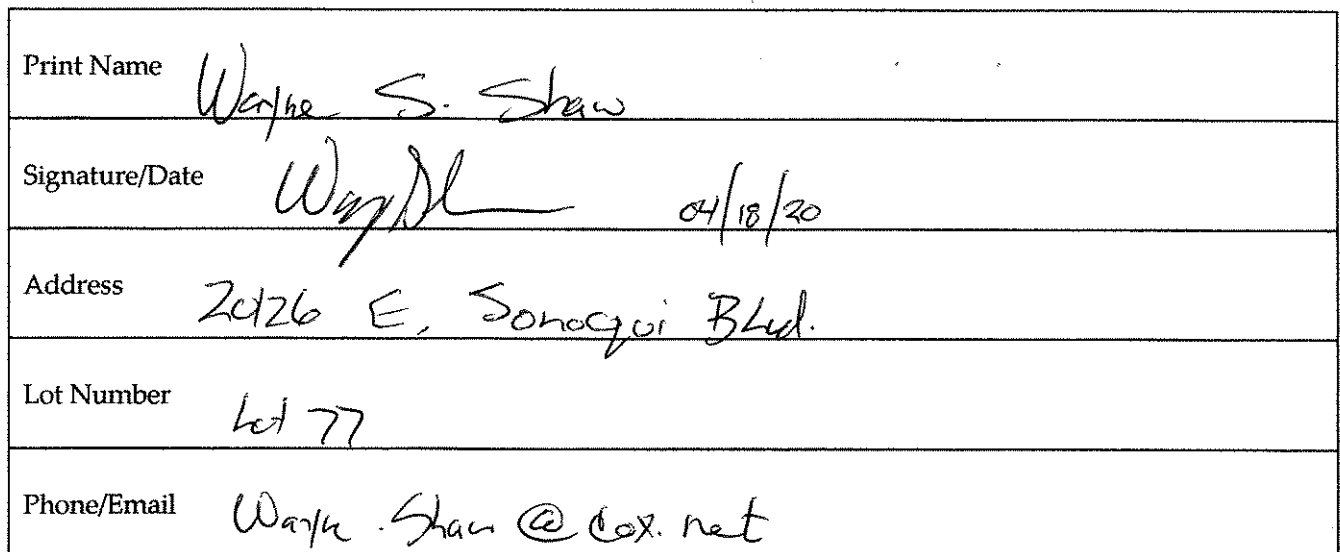 Print Name Wayne S. Shaw
Signature/Date 04/18/20
Address E. Sonoqui Blvd.
Lot Number Lot 77
Phone/Email Wayne.Shaw@cox.net